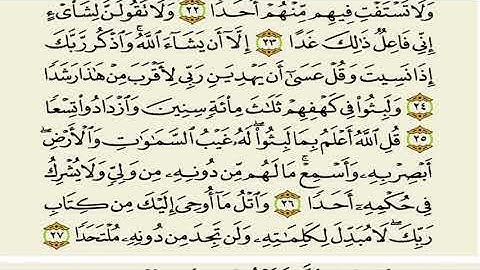 وَلَا تَسْتَفْتِ فِيهِم مِّنْهُمْ أَحَدًا ٢٢ وَلَا تَقُولَنَّ لِشَاْىْءٍ
إِنِّي فَاعِلٌ ذَٰلِكَ غَدًا ٢٣ إِلَّا أَن يَشَاءَ اللَّهُ وَاذْكُر رَّبَّكَ
إِذَا نَسِيتَ وَقُلْ عَسَىٰ أَن يَهْدِيَنِ رَبِّي لِأَقْرَبَ مِنْ هَٰذَا رَشَدًا
٢٤ وَلَبِثُوا فِي كَهْفِهِمْ ثَلَاثَ مِائَةٍ سِنِينَ وَازْدَادُوا تِسْعًا
٢٥ قُلِ اللَّهُ أَعْلَمُ بِمَا لَبِثُوا لَهُ غَيْبُ السَّمَاوَاتِ وَالْأَرْضِ
أَبْصِرْ بِهِ وَأَسْمِعْ مَا لَهُم مِّن دُونِهِ مِن وَلِيٍّ وَلَا يُشْرِكُ
فِي حُكْمِهِ أَحَدًا ٢٦ وَاتْلُ مَا أُوحِيَ إِلَيْكَ مِن كِتَابِ
رَبِّكَ لَا مُبَدِّلَ لِكَلِمَاتِهِ وَلَن تَجِدَ مِن دُونِهِ مُلْتَحَدًا ٢٧